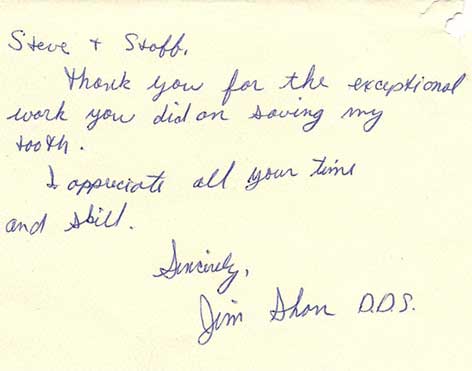 Steve + Staff,
Thank you for the exceptional
work you did on saving my
tooth.
I appreciate all your time
and skill.
Sincerely,
Jim Shon D.D.S.